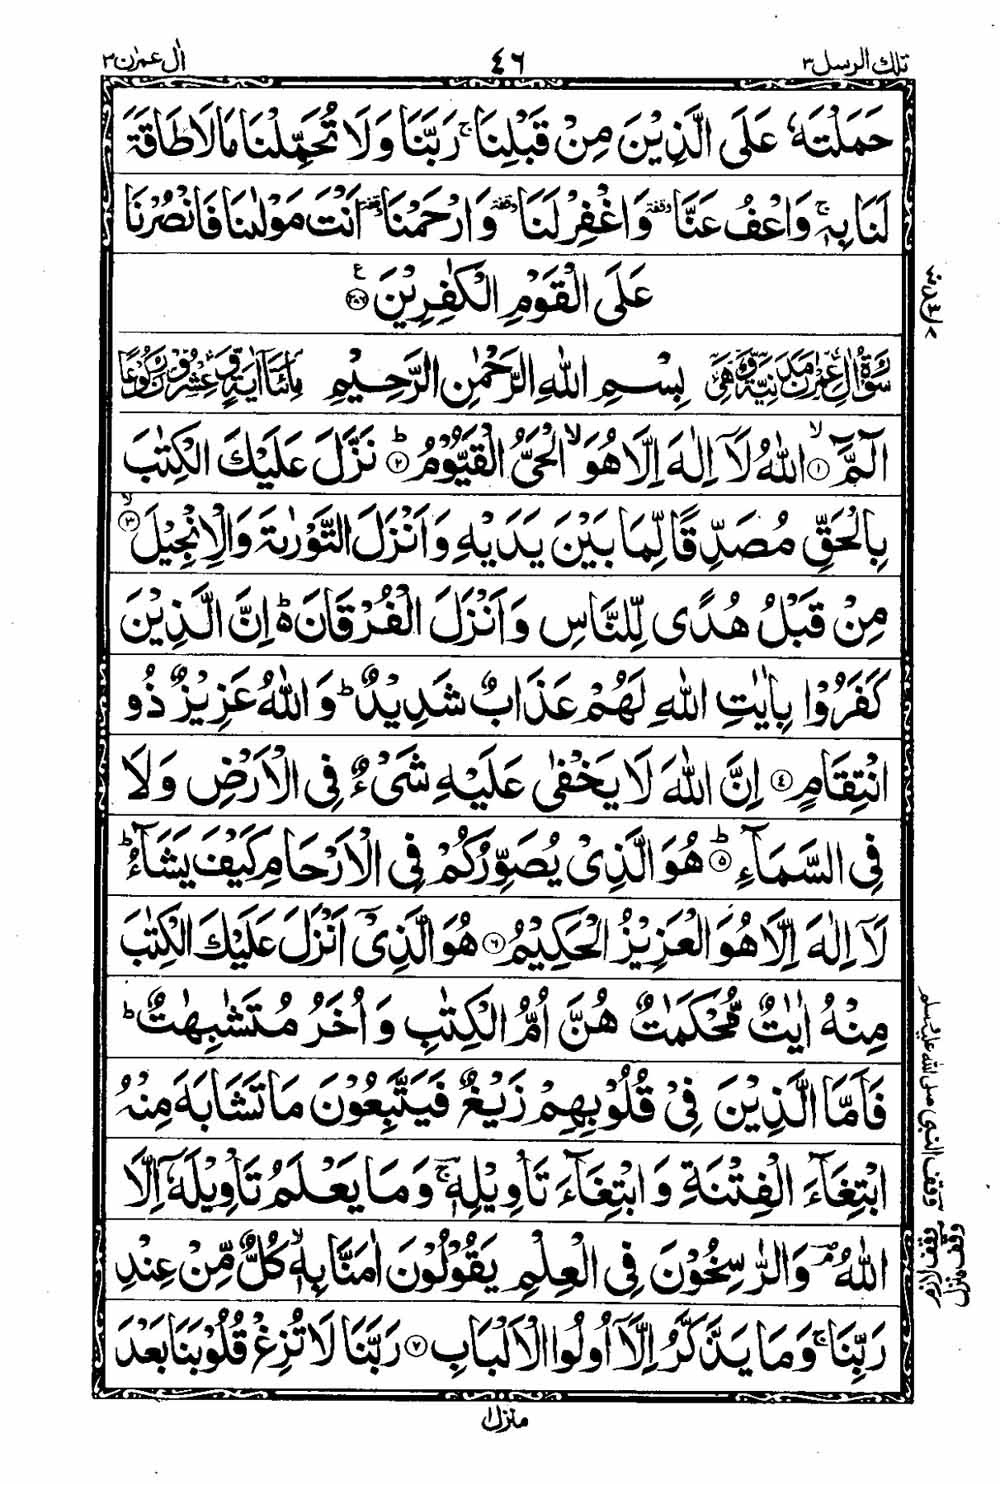 تلك الرسل ٣
٤٦
اٰل عمرٰن ٣
حَمَلْتَهٗ عَلَى الَّذِيْنَ مِنْ قَبْلِنَا ۚ رَبَّنَا وَلَا تُحَمِّلْنَا مَا لَا طَاقَةَ
لَنَا بِهٖ ۚ وَاعْفُ عَنَّا وقفة وَاغْفِرْ لَنَا وقفة وَارْحَمْنَا وقفة اَنْتَ مَوْلٰىنَا فَانْصُرْنَا
عَلَى الْقَوْمِ الْكٰفِرِيْنَ ﴿٢٨٦﴾ ع
سُوْرَةُ اٰلِ عِمْرٰنَ مَدَنِيَّةٌ وَّهِيَ بِسْمِ اللّٰهِ الرَّحْمٰنِ الرَّحِيْمِ مِائَتَا اٰيَةٍ وَّعِشْرُوْنَ رُكُوْعًا
الٓمّٓ ﴿١﴾ ۙ اللّٰهُ لَاۤ اِلٰهَ اِلَّا هُوَ ۙ الْحَىُّ الْقَيُّوْمُ ﴿٢﴾ ؕ نَزَّلَ عَلَيْكَ الْكِتٰبَ
بِالْحَقِّ مُصَدِّقًا لِّمَا بَيْنَ يَدَيْهِ وَاَنْزَلَ التَّوْرٰىةَ وَالْاِنْجِيْلَ ﴿٣﴾ ۙ
مِنْ قَبْلُ هُدًى لِّلنَّاسِ وَاَنْزَلَ الْفُرْقَانَ ؕ اِنَّ الَّذِيْنَ
كَفَرُوْا بِاٰيٰتِ اللّٰهِ لَهُمْ عَذَابٌ شَدِيْدٌ ؕ وَاللّٰهُ عَزِيْزٌ ذُو
انْتِقَامٍ ﴿٤﴾ اِنَّ اللّٰهَ لَا يَخْفٰى عَلَيْهِ شَىْءٌ فِى الْاَرْضِ وَلَا
فِى السَّمَآءِ ﴿٥﴾ ؕ هُوَ الَّذِىْ يُصَوِّرُكُمْ فِى الْاَرْحَامِ كَيْفَ يَشَآءُ ؕ
لَاۤ اِلٰهَ اِلَّا هُوَ الْعَزِيْزُ الْحَكِيْمُ ﴿٦﴾ هُوَ الَّذِىْۤ اَنْزَلَ عَلَيْكَ الْكِتٰبَ
مِنْهُ اٰيٰتٌ مُّحْكَمٰتٌ هُنَّ اُمُّ الْكِتٰبِ وَاُخَرُ مُتَشٰبِهٰتٌ ؕ
فَاَمَّا الَّذِيْنَ فِىْ قُلُوْبِهِمْ زَيْغٌ فَيَتَّبِعُوْنَ مَا تَشَابَهَ مِنْهُ
ابْتِغَآءَ الْفِتْنَةِ وَابْتِغَآءَ تَاْوِيْلِهٖ ۚ وَمَا يَعْلَمُ تَاْوِيْلَهٗۤ اِلَّا
اللّٰهُ ۘ وَالرّٰسِخُوْنَ فِى الْعِلْمِ يَقُوْلُوْنَ اٰمَنَّا بِهٖ ۙ كُلٌّ مِّنْ عِنْدِ
رَبِّنَا ۚ وَمَا يَذَّكَّرُ اِلَّاۤ اُولُوا الْاَلْبَابِ ﴿٧﴾ رَبَّنَا لَا تُزِغْ قُلُوْبَنَا بَعْدَ
وقف النبى صلى الله عليه وسلم
وقف لازم
وقف منزل
منزل ١